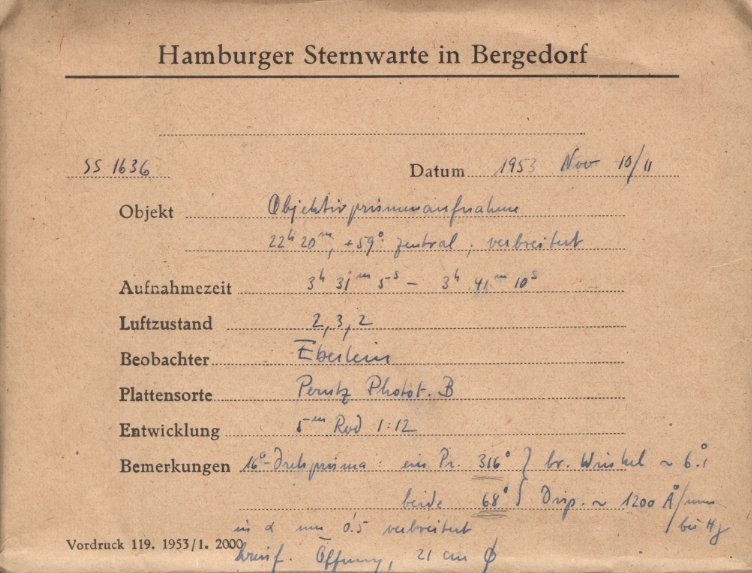 Hamburger Sternwarte in Bergedorf
SS 1636 Datum 1953 Nov 10/11
Objekt Objektivprismenaufnahme
22ʰ 20ᵐ, +59° zentral, verbreitert
Aufnahmezeit 3ʰ 31ᵐ 5ˢ – 3ʰ 41ᵐ 10ˢ
Luftzustand 2, 3, 2
Beobachter Eberlein
Plattensorte Perutz Photot. B
Entwicklung 5ᵐ Rod 1:12
Bemerkungen 16°-Drehprisma: ein Pr. 316° } br. Winkel ~ 6.°1
beide 68° } Disp. ~ 1200 Å/mm
in α um 0.'5 verbreitert bei Hγ
Vordruck 119. 1953/1. 2000 Öffnung, 21 cm ϕ